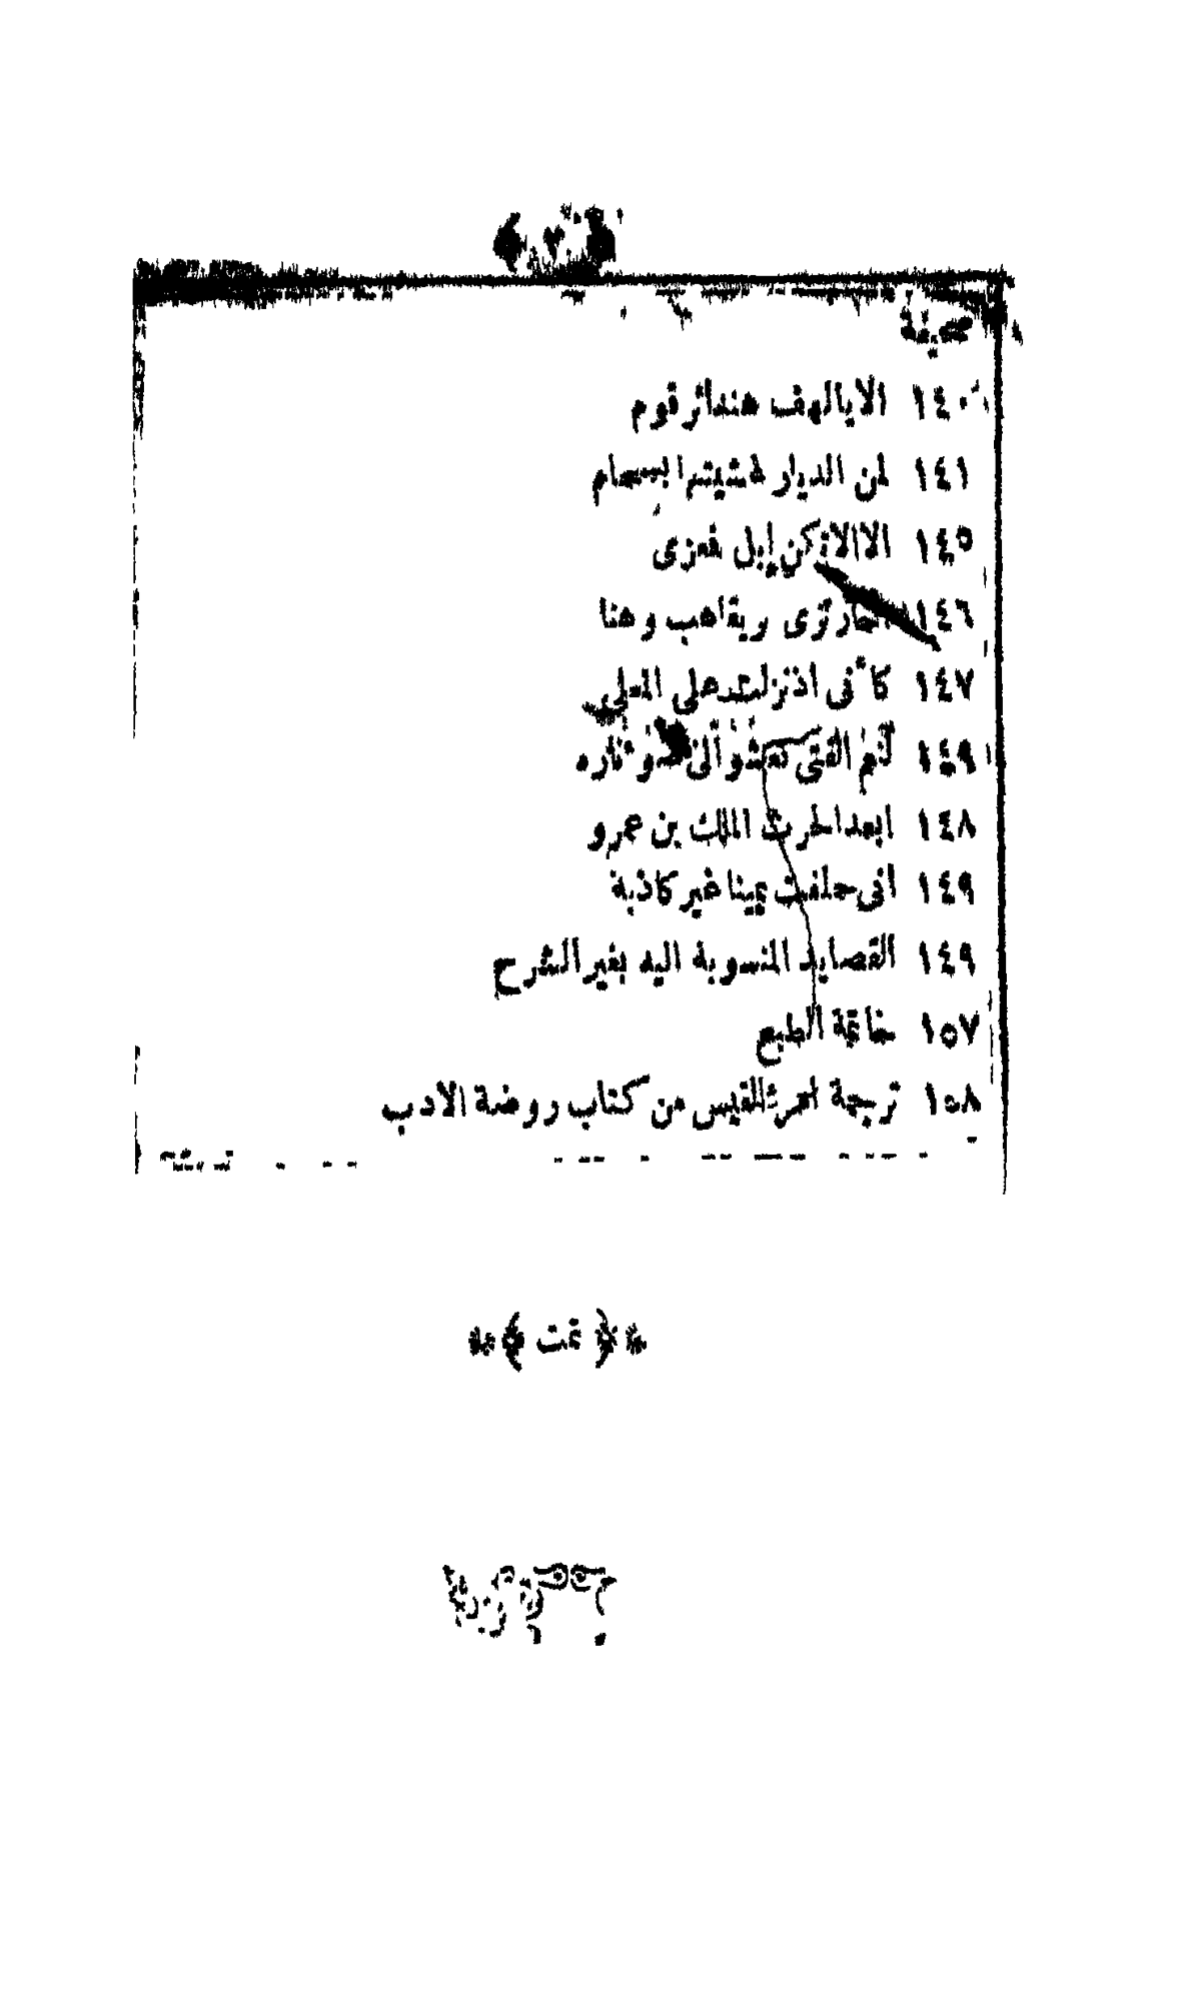 ﴿ ٢ ﴾
صحيفة
١٤٠ الا يا لهف هند اثر قوم
١٤١ لمن الديار غشيتها بسحام
١٤٥ الا الا تكن إبل فمعزى
١٤٦ احار ترى بريقا هب وهنا
١٤٧ كأنى اذ نزلت على المعلى
١٤٩ لنعم الفتى تعشو الى ضوء ناره
١٤٨ ابعد الحرث الملك بن عمرو
١٤٩ انى حلفت يمينا غير كاذبة
١٤٩ القصايد المنسوبة اليه بغير الشرح
١٥٧ خاتمة الطبع
١٥٨ ترجمة امرئ القيس من كتاب روضة الادب
*﴿ تمت ﴾*